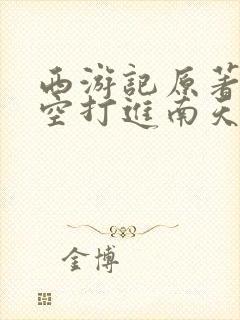 西游記原著
空打進南天
金博